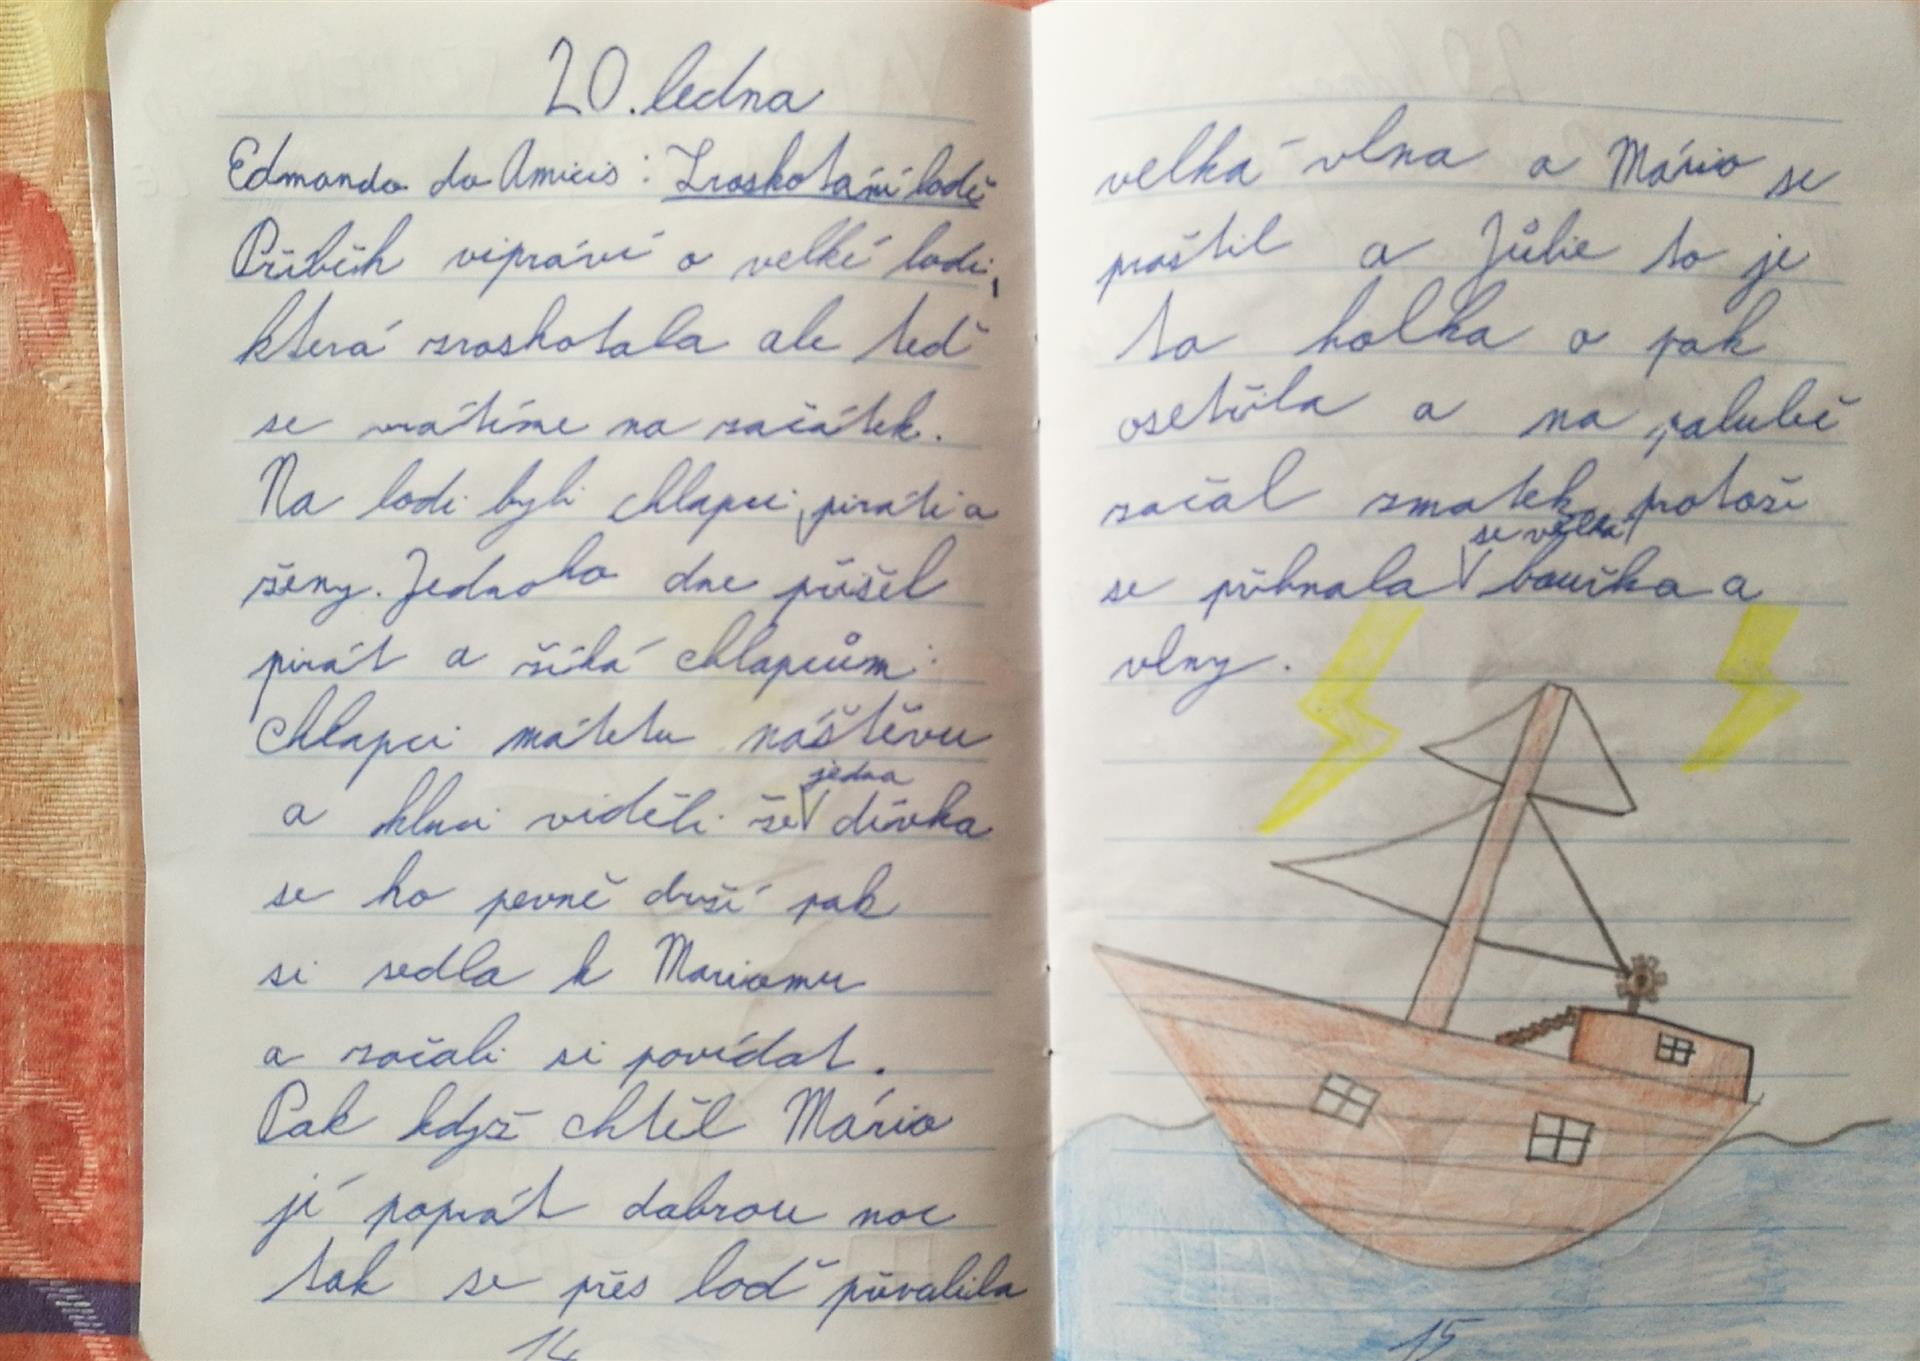 20. ledna
Edmondo do Amicis: Zroskotání lodě
Příběh vipráví o velkí lodi,
která zroskotala ale teď
se vrátíme na začátek.
Na lodi byli chlapci, piráti a
ženy. Jednoho dne přišel
pirát a říká chlapcům:
Chlapci mátetu náštěvu
a kluci viděli že jedna dívka
se ho pevně drží pak
si sedla k Mariomu
a začali si povídat.
Pak když chtěl Mário
jí popřát dobrou noc
tak se přes loď přivalila
velká vlna a Mário se
praštil a Júlie to je
ta holka o pak
osetřila a na palubě
začal zmatek, protoži
se přihnala se velká bouřka a
vlny.
14
15